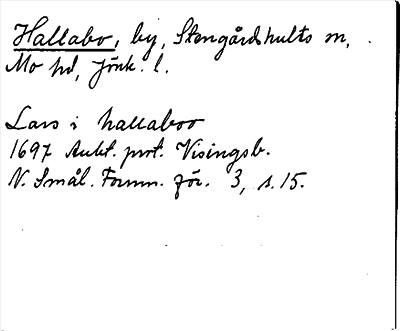 Hallabo, by, Stengårdshults m,
Mo hd, Jönk. l.
Lars i hallaboo
1697 Aukt. prot. Visingsb.
N. Smål. Fornm. för. 3, s. 15.